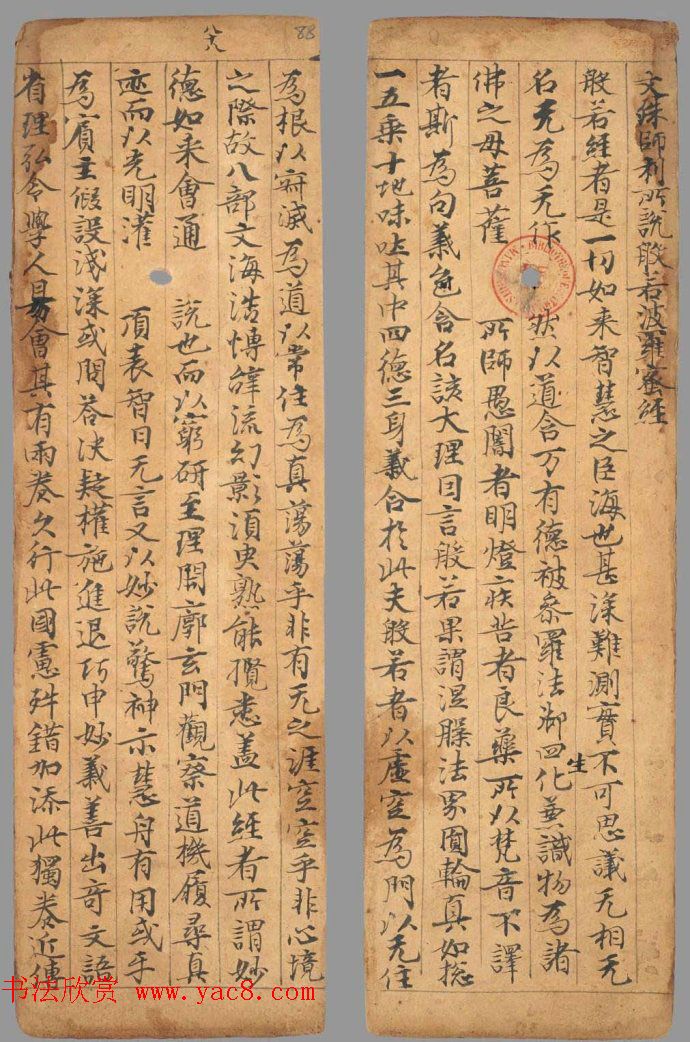 文殊師利所説般若波羅蜜經
般若經者是一切如来智慧之臣海也甚深難測實不可思議无相无
名无為无作 狀以道含万有德被叅羅法御四化兼識物為諸
生
佛之母菩薩 所師愚闇者明燈疾苦者良藥所以梵音不譯
者斯為向義包含名該大理目言般若果謂涅膜法界圓輪真如惣
一五乗十地味吐其中四德三身義合於此夫般若者以虚空為門以无住
八十八
88
為根以寂滅為道以常住為真蕩蕩乎非有无之涯空空乎非心境
之際故八部文海浩愽 流幻影湏臾熟能攬悉盖此經者所謂妙
德如来會通 説也而以窮研至理開廓玄門觀察道機履尋真
迹而以光明灌 頂表智日无言又以妙説驚神示慧舟有用或乎
為賓主假設浅深或問荅决疑權施進退巧申妙義善出奇文諮
省理弘令學人易會其有兩卷久行此國憲殊錯加添此獨卷近傳
书法欣赏 www.yac8.com